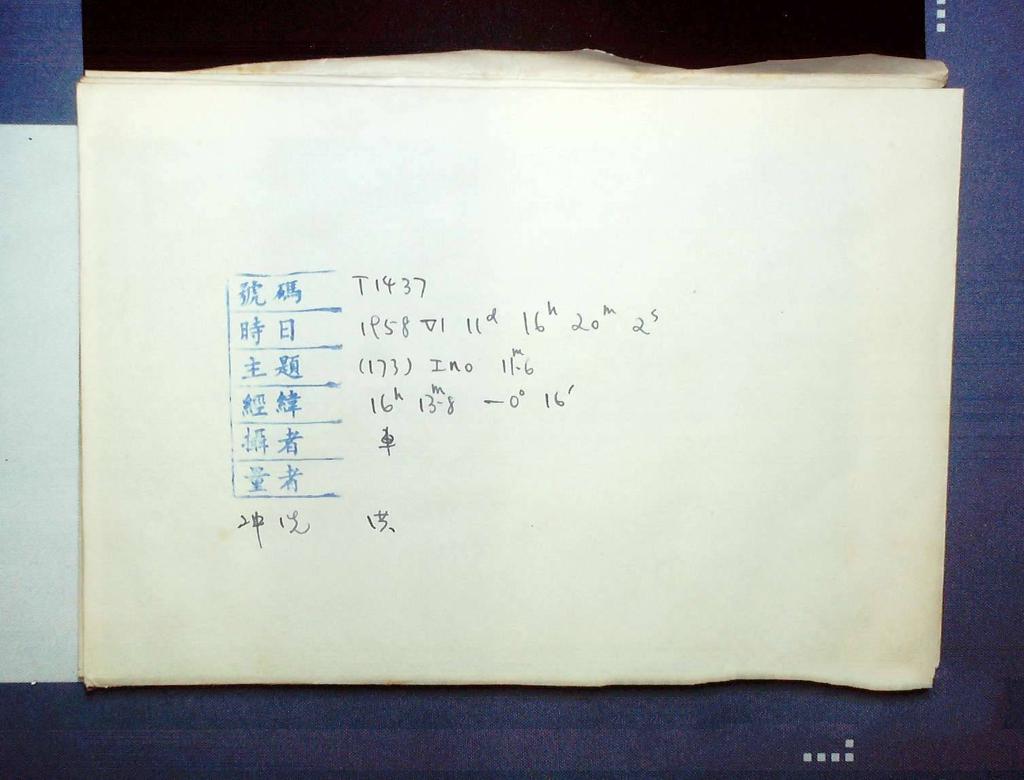 號碼 T1437
時日 1958 VI 11ᵈ 16ʰ 20ᵐ 2ˢ
主題 (173) Ino 11ᵐ.6
經緯 16ʰ 13ᵐ.8 -0° 16′
攝者 車
量者
冲洗 洪